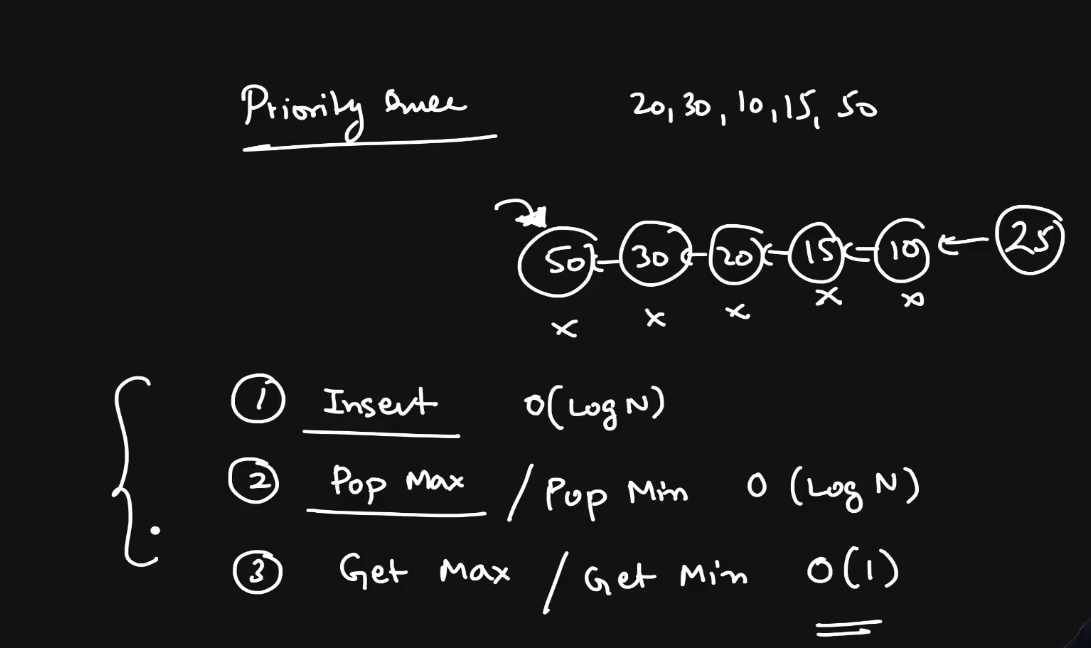 Priority Queue
20, 30, 10, 15, 50
50 ← 30 ← 20 ← 15 ← 10 ← 25
x x x x x
1 Insert O(Log N)
2 Pop Max / Pop Min O (Log N)
3 Get Max / Get Min O(1)